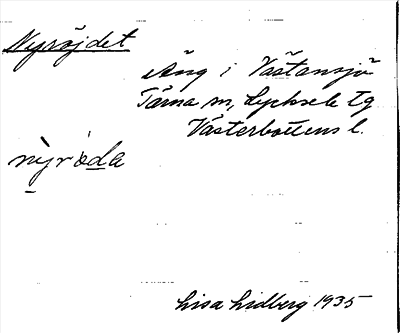 Nyröjdet
Äng i Västansjö
Tärna sn, Lycksele tg
Västerbottens l.
nỳrö̀da
Lisa Lidberg 1935